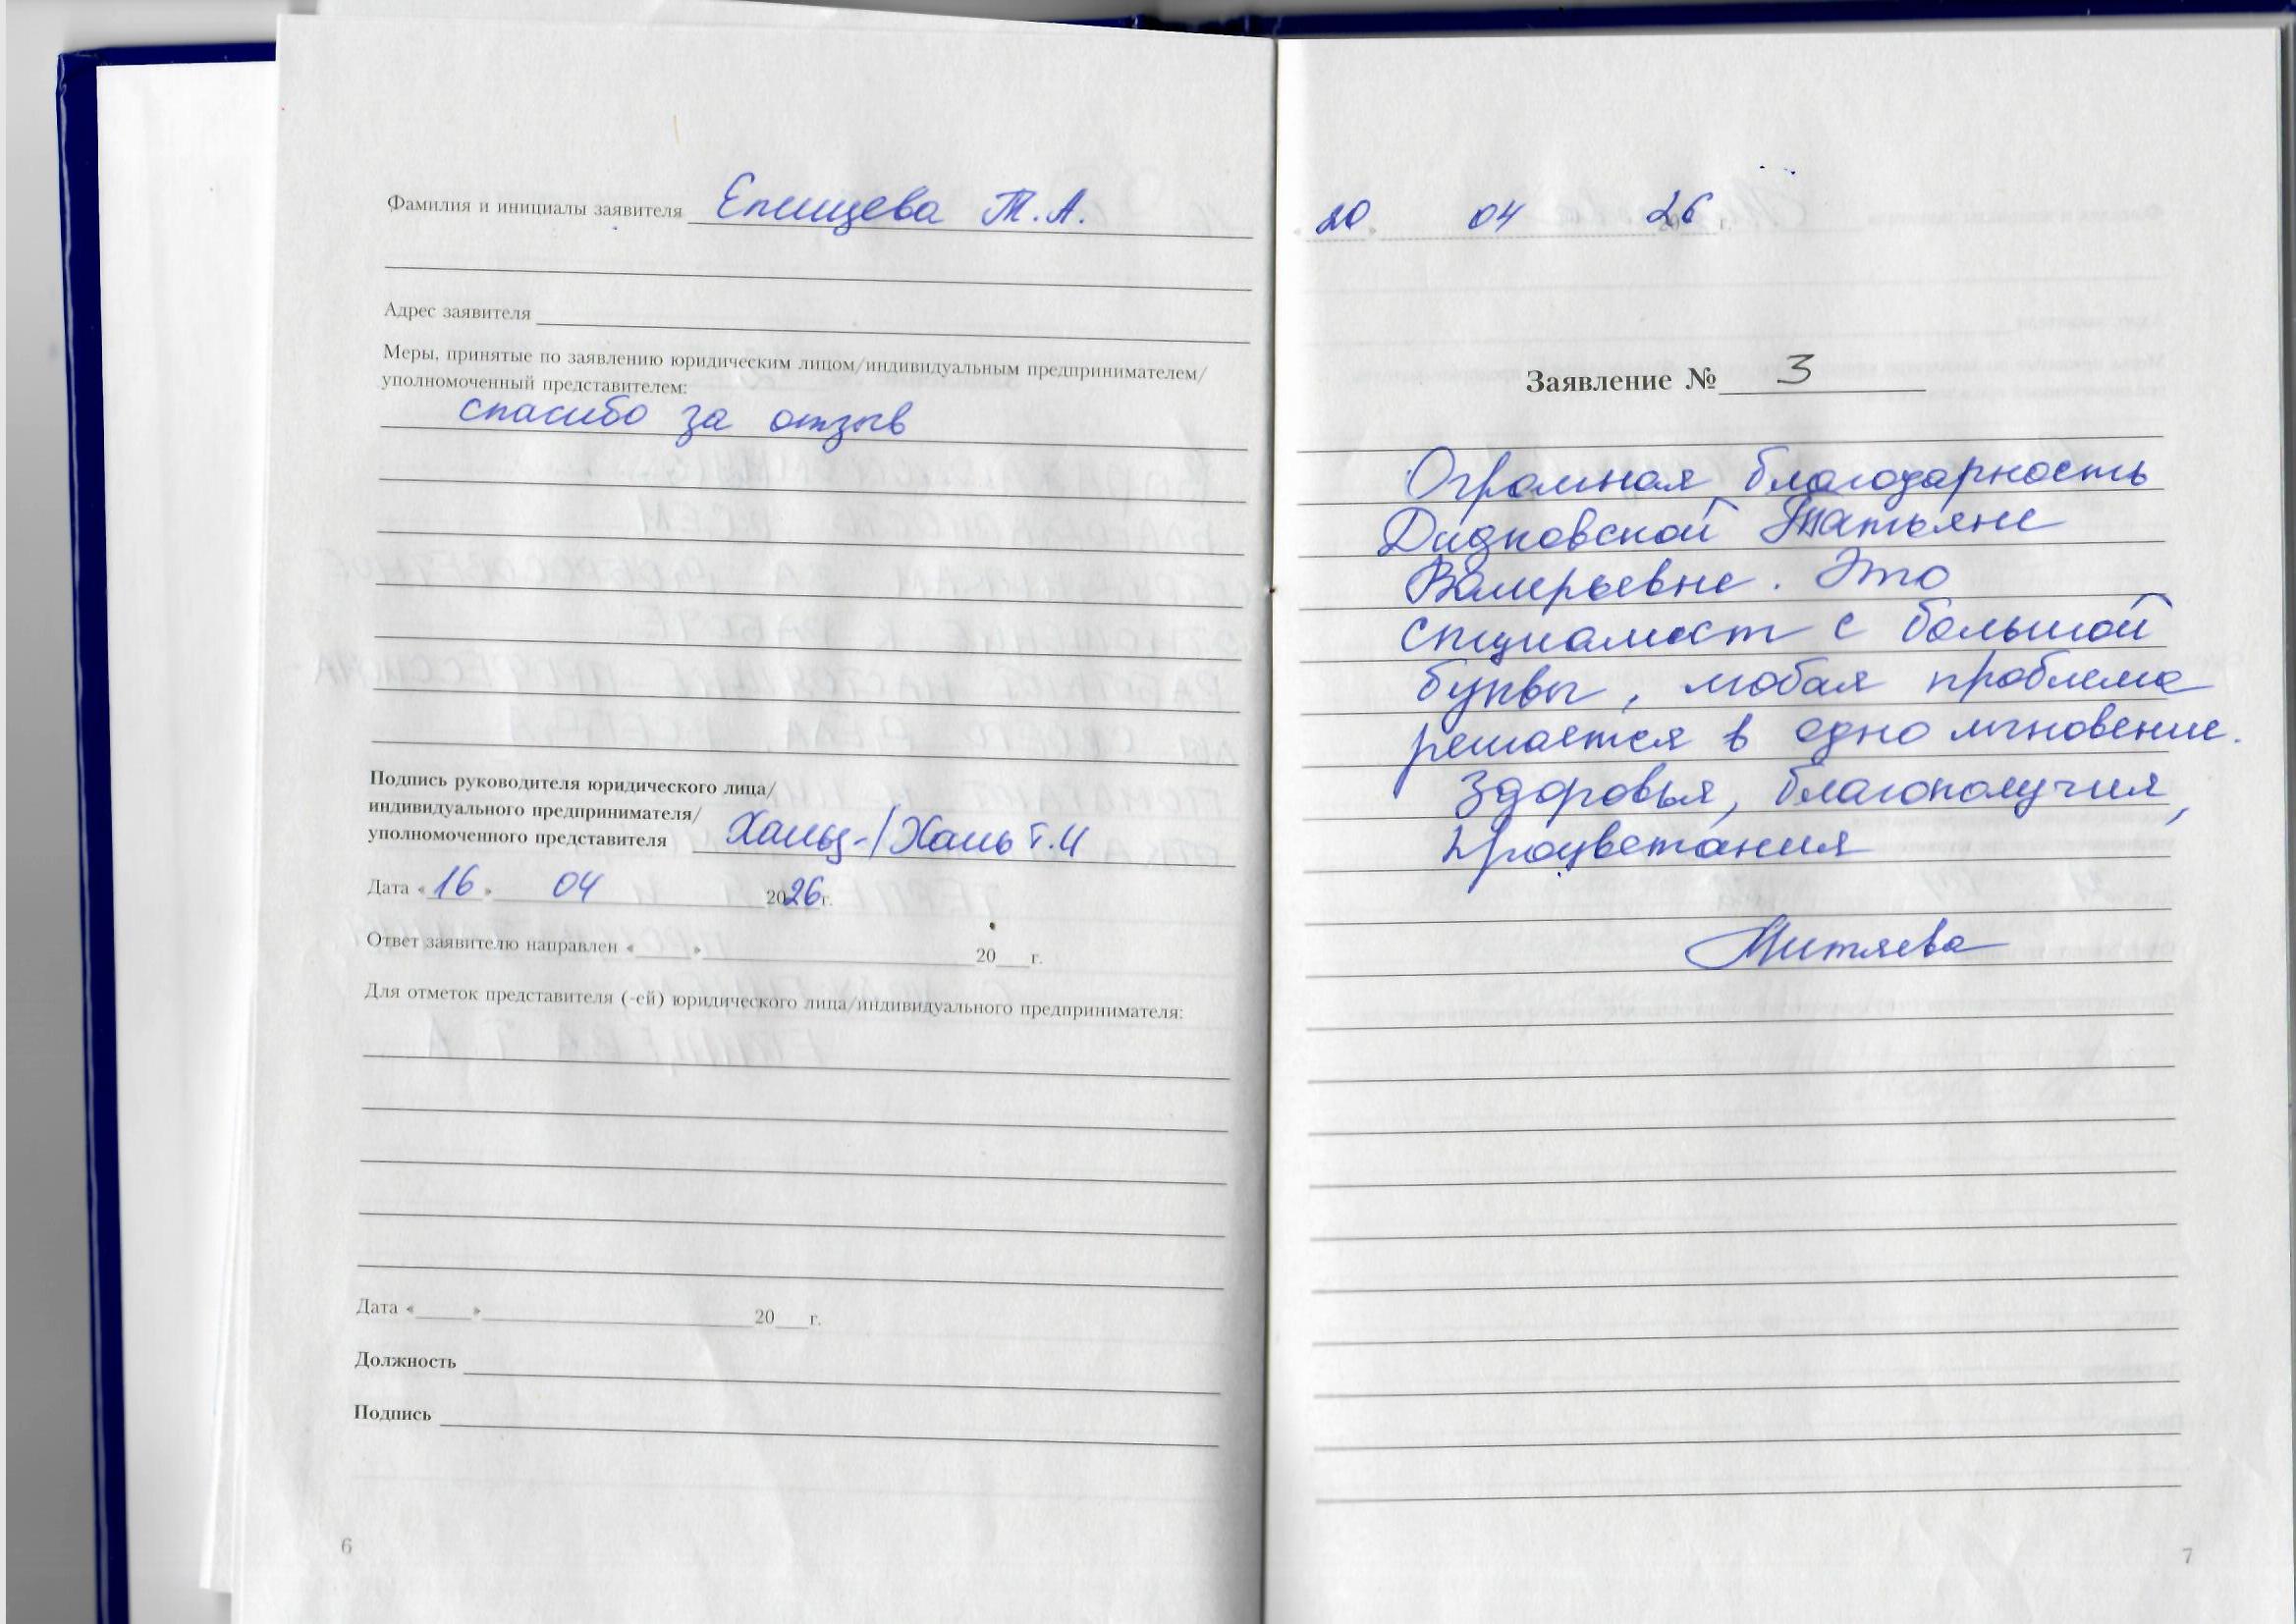 Фамилия и инициалы заявителя Епищева Т.А.
Адрес заявителя
Меры, принятые по заявлению юридическим лицом/индивидуальным предпринимателем/
уполномоченный представителем:
спасибо за отзыв
Подпись руководителя юридического лица/
индивидуального предпринимателя/
уполномоченного представителя Хань Т.И
Дата «16» 04 2026г.
Ответ заявителю направлен «    » 20   г.
Для отметок представителя (-ей) юридического лица/индивидуального предпринимателя:
Дата «    » 20   г.
Должность
Подпись
6
20 04 26
Заявление № 3
Огромная благодарность
Дидковской Татьяне
Валерьевне. Это
специалист с большой
буквы, любая проблема
решается в одно мгновение.
Здоровья, благополучия,
процветания
Митяева
7